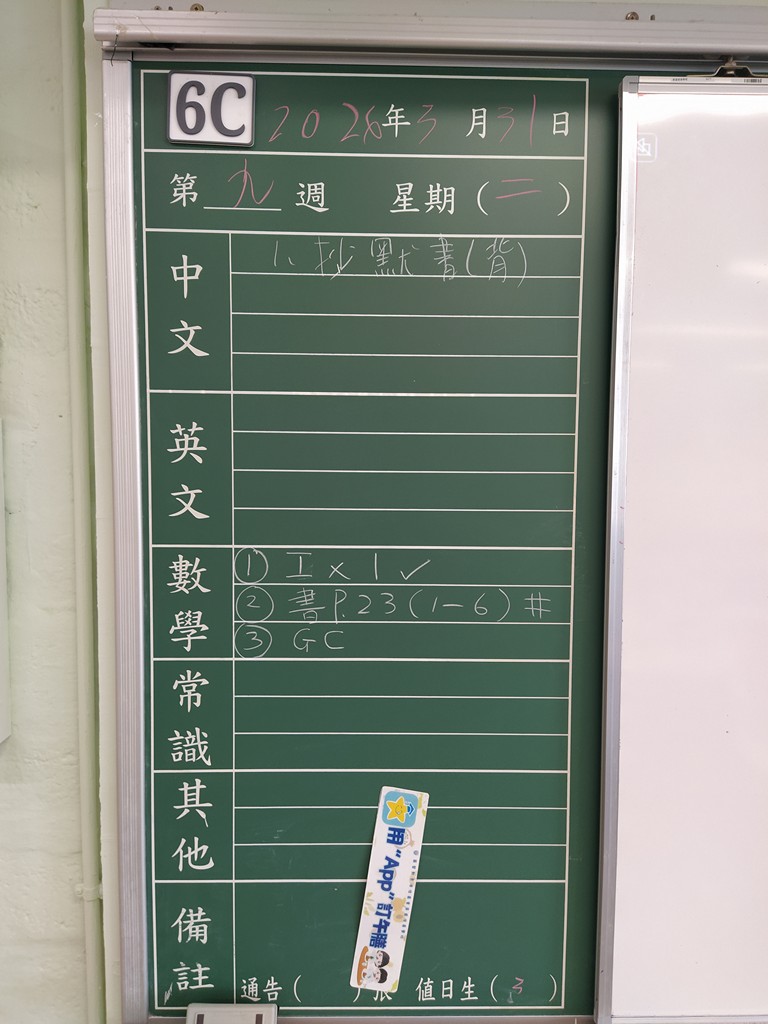 6C 2026年3月31日
第九週 星期(二)
中文
1. 抄默書(背)
英文
數學
① 工 x 1 ✓
② 書 P.23 (1-6) #
③ GC
常識
其他
用"App"訂午膳
備註
通告( )張 值日生(3)